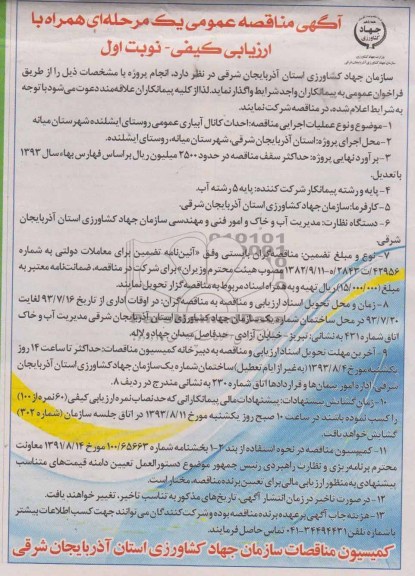 آگهی مناقصه عمومی یک مرحله‌ای همراه با
ارزیابی کیفی- نوبت اول
جهاد
کشاورزی
سازمان جهاد کشاورزی استان آذربایجان شرقی در نظر دارد، انجام پروژه با مشخصات ذیل را از طریق
فراخوان عمومی به پیمانکاران واجد شرایط واگذار نماید. لذا از کلیه پیمانکاران علاقمنده دعوت می‌شود با توجه
به شرایط اعلام شده، در مناقصه شرکت نمایند.
۱-موضوع و نوع عملیات اجرایی مناقصه: احداث کانال آبیاری عمومی روستای ایشلنده شهرستان میانه
۲-محل اجرای پروژه: استان آذربایجان شرقی، شهرستان میانه، روستای ایشلنده.
۳- برآورد نهایی پروژه: حداکثر سقف مناقصه در حدود ۲۵۰۰ میلیون ریال بر اساس فهارس بهاء سال ۱۳۹۳
با تعدیل.
۴- پایه و رشته پیمانکار شرکت کننده: پایه ۵ رشته آب.
۵- کارفرما: سازمان جهاد کشاورزی استان آذربایجان شرقی.
۶- دستگاه نظارت: مدیریت آب و خاک و امور فنی و مهندسی سازمان جهاد کشاورزی استان آذربایجان
شرقی.
۷- نوع و مبلغ تضمین: مناقصه‌گران بایستی وفق «آئین‌نامه تضمین برای معاملات دولتی به شماره
۴۲۹۵۶/ت۲۸۴۳ه-۱۳۸۲/۹/۱۱ مصوب هیئت محترم وزیران» برای شرکت در مناقصه، ضمانت‌نامه معتبر به
مبلغ (۱۱۵/۰۰۰/۰۰۰) ریال تهیه و به همراه اسناد مربوط به مناقصه گزار تحویل نمایند.
۸- زمان و محل تحویل اسناد ارزیابی و مناقصه به مناقصه‌گران: در اوقات اداری از تاریخ ۹۳/۷/۱۶ لغایت
۹۳/۷/۲۰ در محل ساختمان شماره یک سازمان جهاد کشاورزی استان آذربایجان شرقی مدیریت آب و خاک
اتاق شماره ۴۳۱ به نشانی: تبریز - خیابان آزادی - حدفاصل میدان جهاد و لاله.
۹- آخرین مهلت تحویل اسناد ارزیابی و مناقصه به دبیرخانه کمیسیون مناقصات: حداکثر تا ساعت ۱۴ روز
یکشنبه مورخ ۱۳۹۳/۸/۴ (به غیر از ایام تعطیل) ساختمان شماره یک سازمان جهاد کشاورزی استان آذربایجان
شرقی اداره امور پیمان‌ها و قراردادها اتاق شماره ۲۳۰ به نشانی مندرج در ردیف ۸.
۱۰- زمان گشایش پیشنهادات: پیشنهادات مالی پیمانکارانی که حدنصاب نمره ارزیابی کیفی (۶۰ نمره از ۱۰۰)
را کسب نموده باشند در ساعت ۱۰ صبح روز یکشنبه مورخ ۱۳۹۳/۸/۱۱ در اتاق جلسه سازمان (شماره ۳۰۲)
گشایش خواهد یافت.
۱۱- کمیسیون مناقصه در نحوه استفاده از بند ۴-۱ بخشنامه شماره ۱۰۰/۶۵۶۶۳ مورخ ۱۳۹۱/۸/۱۴ معاونت
محترم برنامه‌ریزی و نظارت راهبردی رئیس جمهور موضوع دستورالعمل تعیین دامنه قیمت‌های متناسب
پیشنهادی به منظور ارزیابی مالی برای تعیین برنده مناقصه مختار است.
۱۲- در صورت تاخیر در زمان انتشار آگهی، تاریخ‌های مذکور به تناسب تاخیر، تغییر خواهند یافت.
۱۳- هزینه چاپ آگهی بر عهده برنده مناقصه بوده و شرکت کنندگان می‌توانند جهت کسب اطلاعات بیشتر
با شماره تلفن ۳۴۴۹۴۴۳۱-۰۴۱ تماس حاصل فرمایند.
کمیسیون مناقصات سازمان جهاد کشاورزی استان آذربایجان شرقی